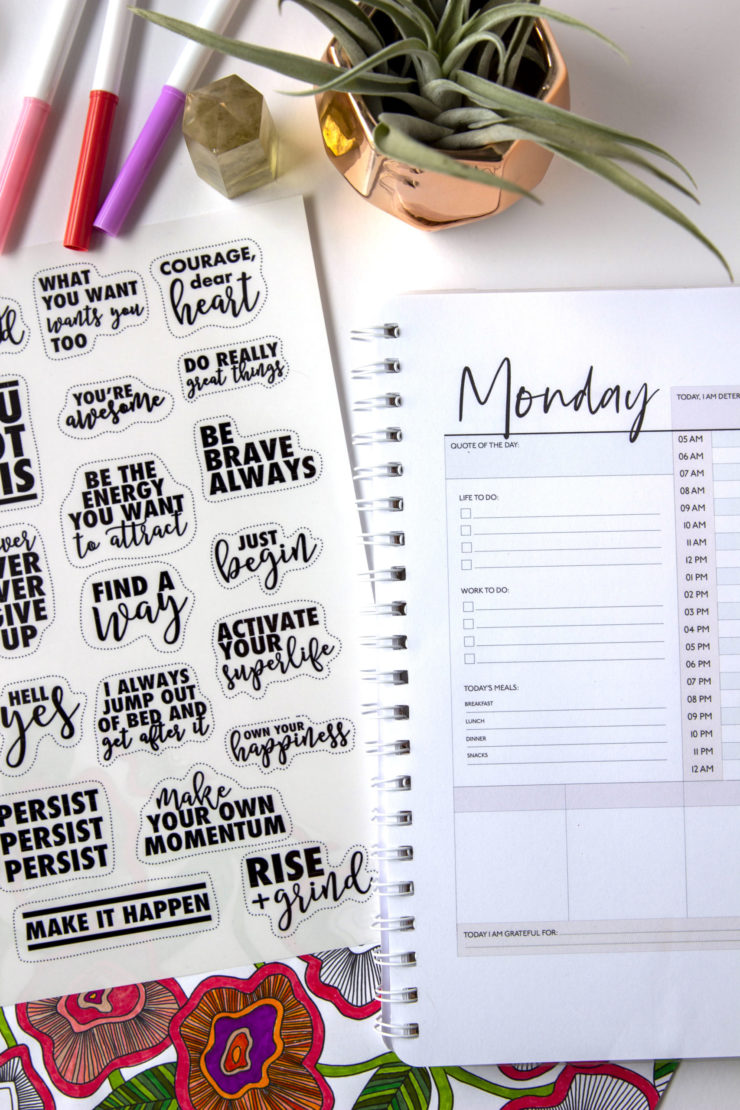 WHAT
YOU WANT
wants you
TOO
COURAGE,
dear
heart
YOU'RE
awesome
DO REALLY
great things
BE
BRAVE
ALWAYS
BE THE
ENERGY
YOU WANT
to attract
JUST
begin
FIND A
way
GIVE
UP
ACTIVATE
YOUR
superlife
HELL
yes
I ALWAYS
JUMP OUT
OF BED AND
get after it
OWN YOUR
happiness
PERSIST
PERSIST
PERSIST
make
YOUR OWN
MOMENTUM
RISE
+grind
MAKE IT HAPPEN
Monday
TODAY, I AM DETER
QUOTE OF THE DAY:
LIFE TO DO:
WORK TO DO:
TODAY'S MEALS:
BREAKFAST
LUNCH
DINNER
SNACKS
05 AM
06 AM
07 AM
08 AM
09 AM
10 AM
11 AM
12 PM
01 PM
02 PM
03 PM
04 PM
05 PM
06 PM
07 PM
08 PM
09 PM
10 PM
11 PM
12 AM
TODAY I AM GRATEFUL FOR: